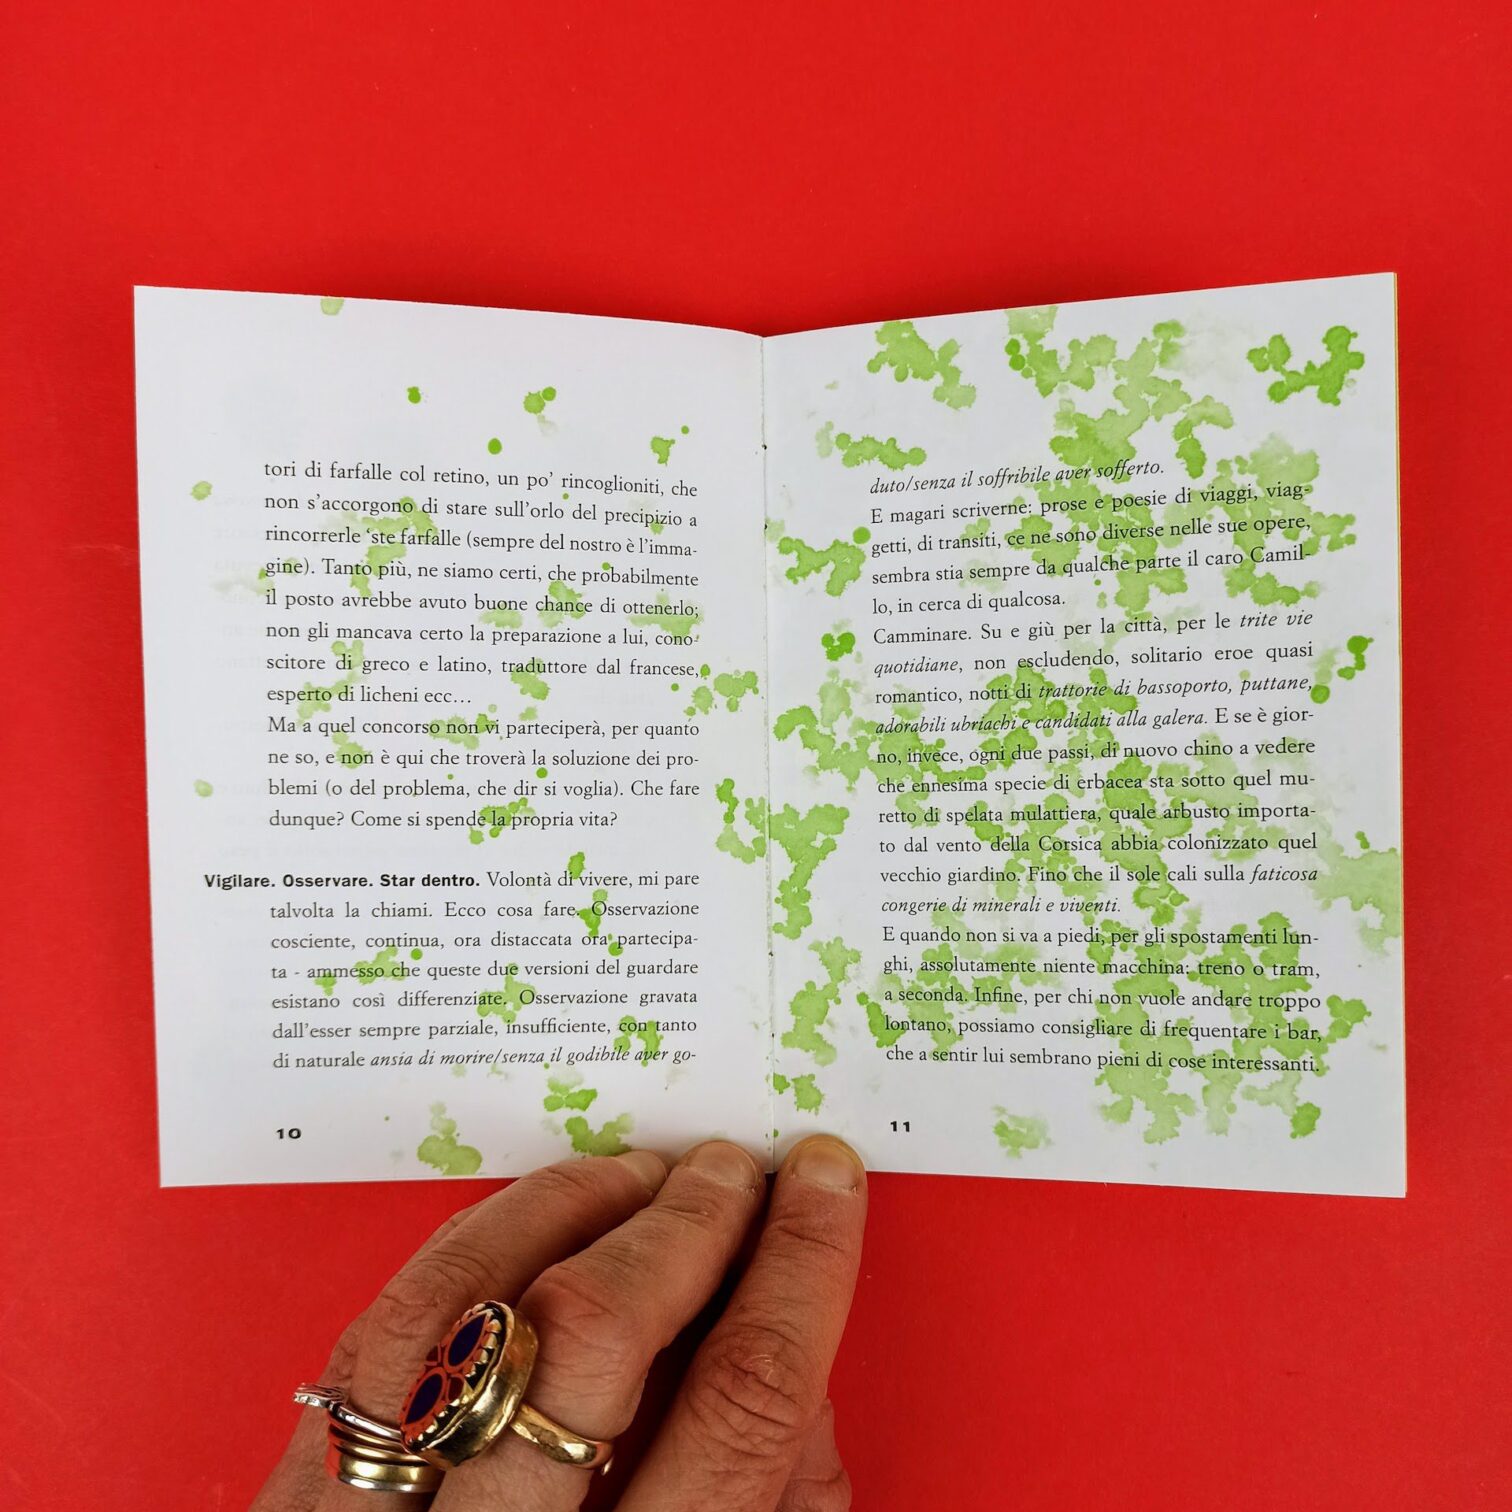 tori di farfalle col retino, un po’ rincoglioniti, che
non s’accorgono di stare sull’orlo del precipizio a
rincorrerle ‘ste farfalle (sempre del nostro è l’imma-
gine). Tanto più, ne siamo certi, che probabilmente
il posto avrebbe avuto buone chance di ottenerlo;
non gli mancava certo la preparazione a lui, cono-
scitore di greco e latino, traduttore dal francese,
esperto di licheni ecc...
Ma a quel concorso non vi parteciperà, per quanto
ne so, e non è qui che troverà la soluzione dei pro-
blemi (o del problema, che dir si voglia). Che fare
dunque? Come si spende la propria vita?
Vigilare. Osservare. Star dentro. Volontà di vivere, mi pare
talvolta la chiami. Ecco cosa fare. Osservazione
cosciente, continua, ora distaccata ora partecipa-
ta - ammesso che queste due versioni del guardare
esistano così differenziate. Osservazione gravata
dall’esser sempre parziale, insufficiente, con tanto
di naturale ansia di morire/senza il godibile aver go-
10
duto/senza il soffribile aver sofferto.
E magari scriverne: prose e poesie di viaggi, viag-
getti, di transiti, ce ne sono diverse nelle sue opere,
sembra stia sempre da qualche parte il caro Camil-
lo, in cerca di qualcosa.
Camminare. Su e giù per la città, per le trite vie
quotidiane, non escludendo, solitario eroe quasi
romantico, notti di trattorie di bassoporto, puttane,
adorabili ubriachi e candidati alla galera. E se è gior-
no, invece, ogni due passi, di nuovo chino a vedere
che ennesima specie di erbacea sta sotto quel mu-
retto di spelata mulattiera, quale arbusto importa-
to dal vento della Corsica abbia colonizzato quel
vecchio giardino. Fino che il sole cali sulla faticosa
congerie di minerali e viventi.
E quando non si va a piedi, per gli spostamenti lun-
ghi, assolutamente niente macchina: treno o tram,
a seconda. Infine, per chi non vuole andare troppo
lontano, possiamo consigliare di frequentare i bar,
che a sentir lui sembrano pieni di cose interessanti.
11